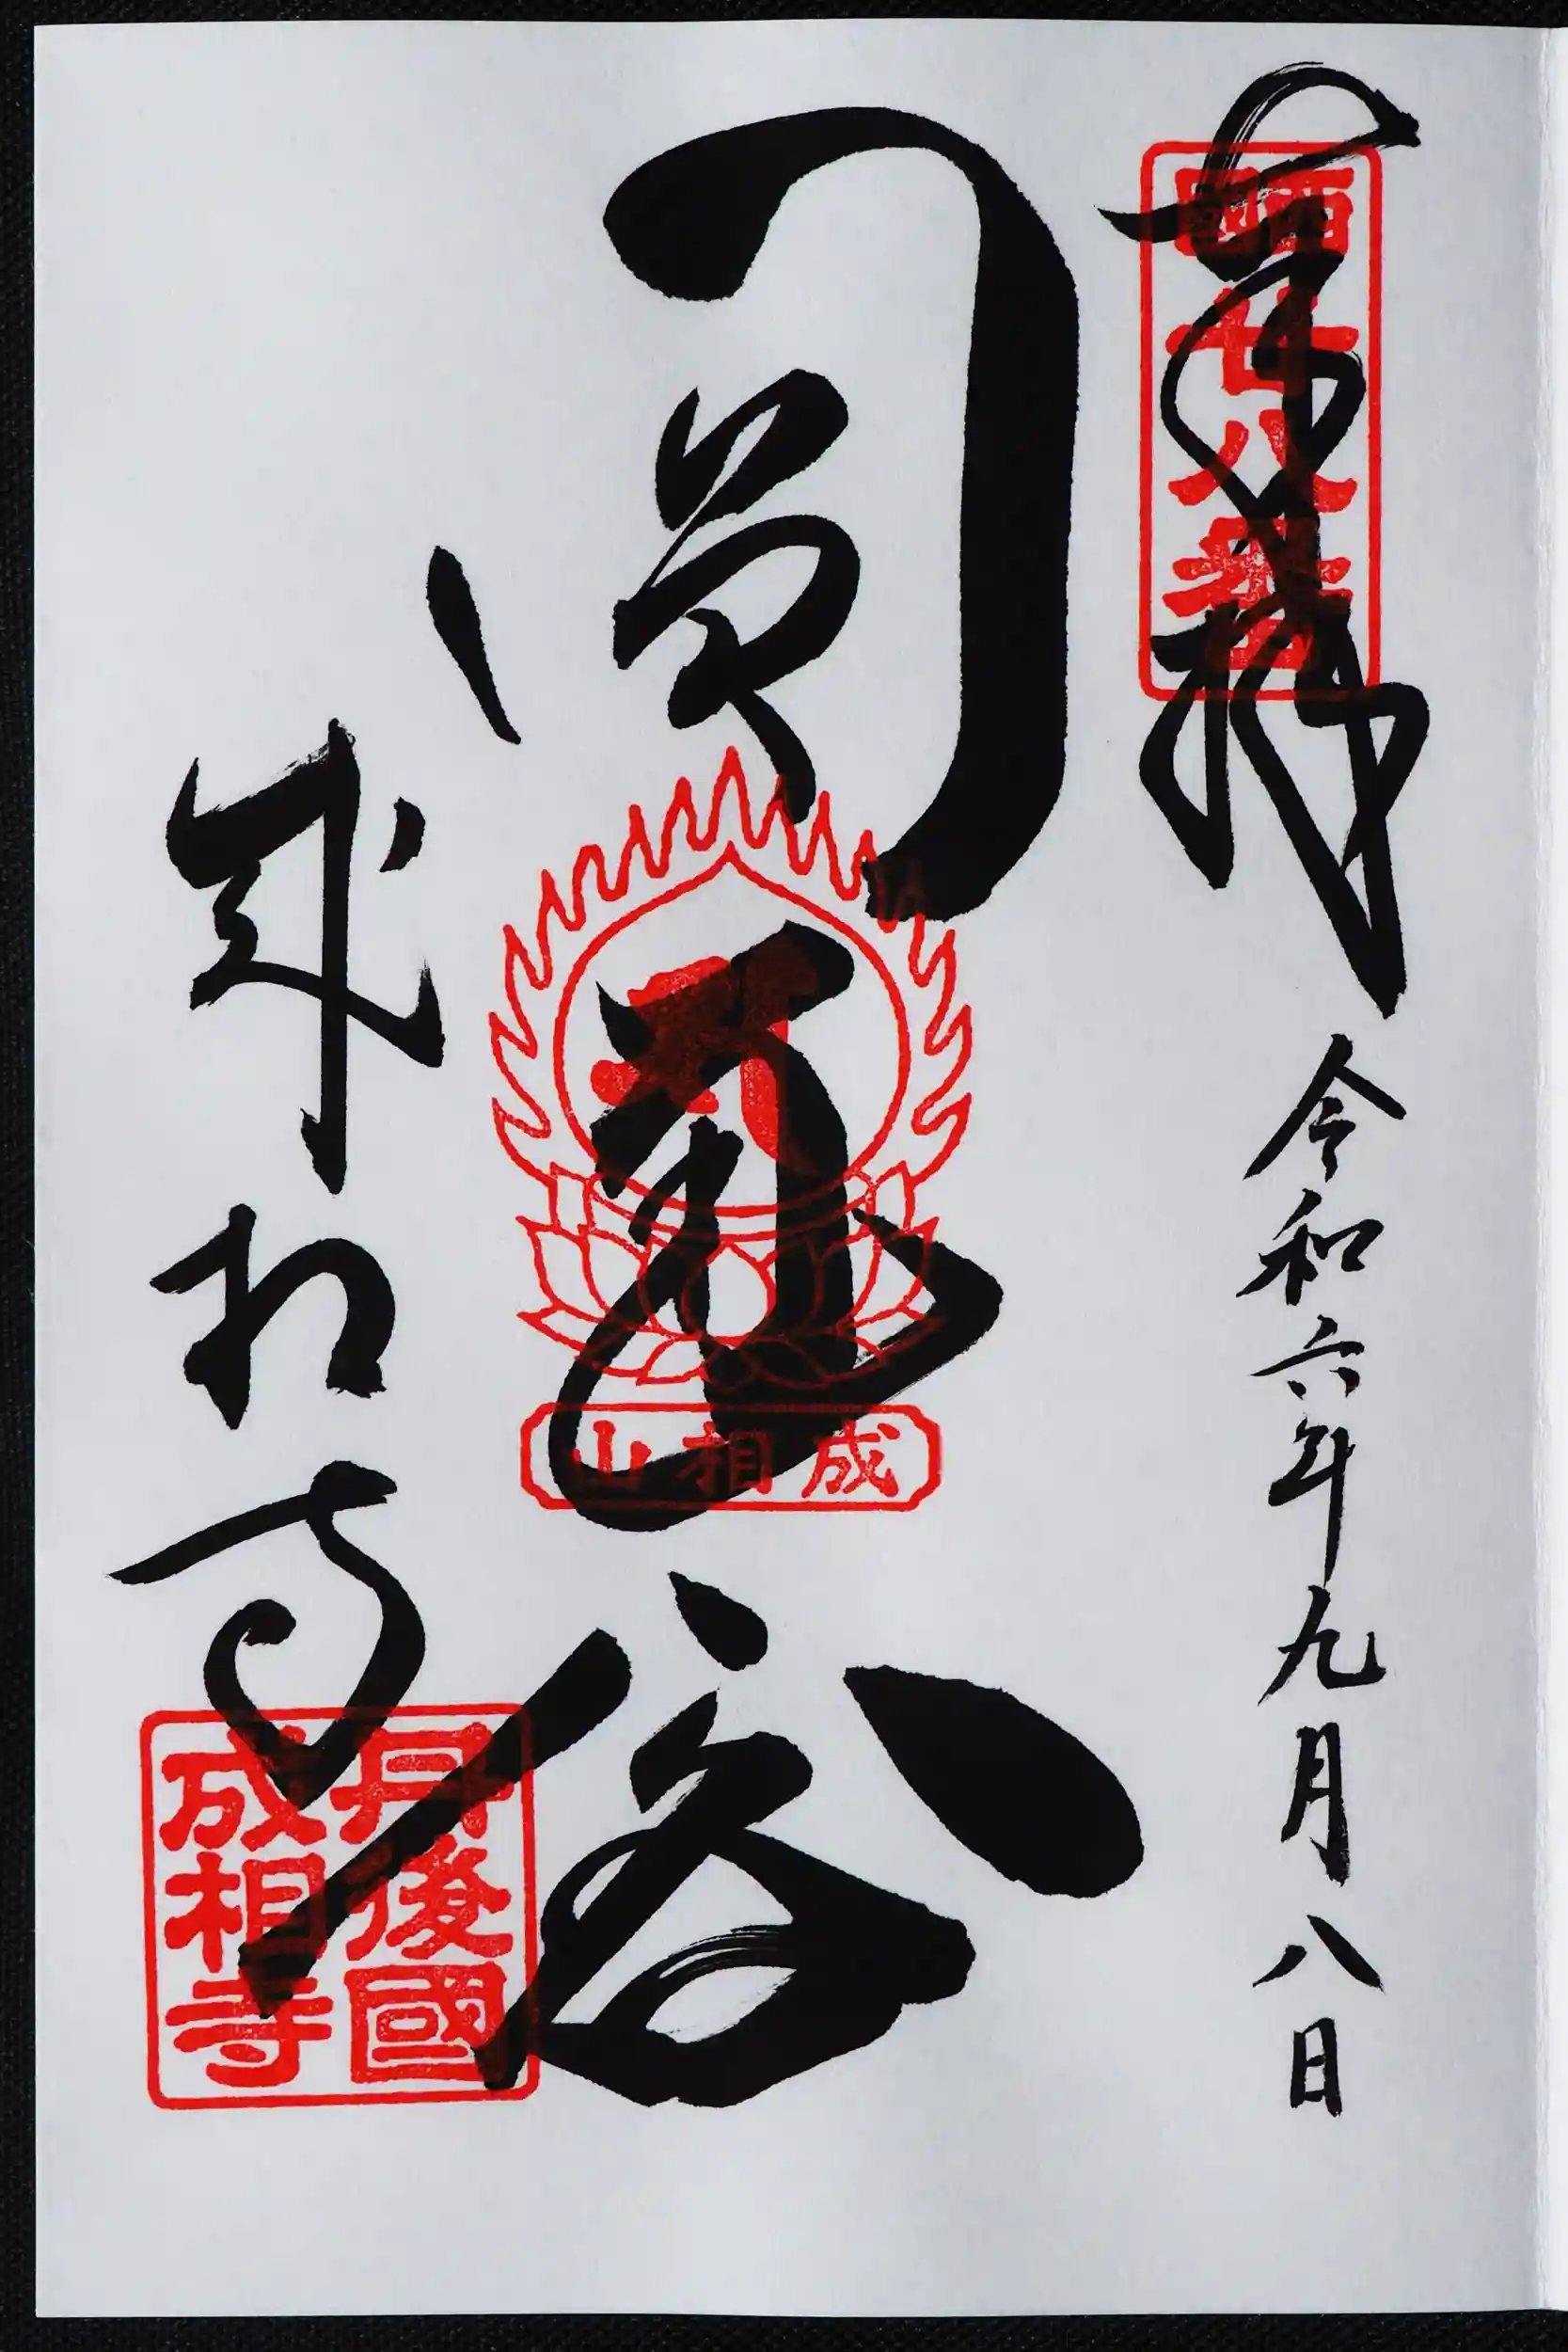 奉拝
令和六年九月八日
西國廿八番
圓
成相山
成相寺
丹後國
成相寺